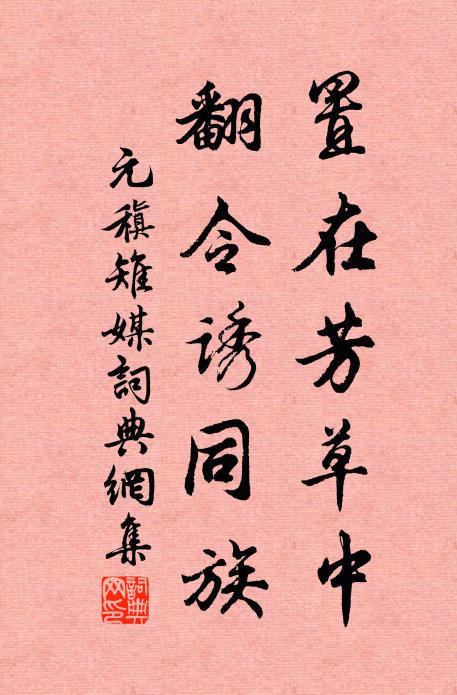 置在芳草中
翻令誘同族
元稹雉媒詞典網集
詞典網印